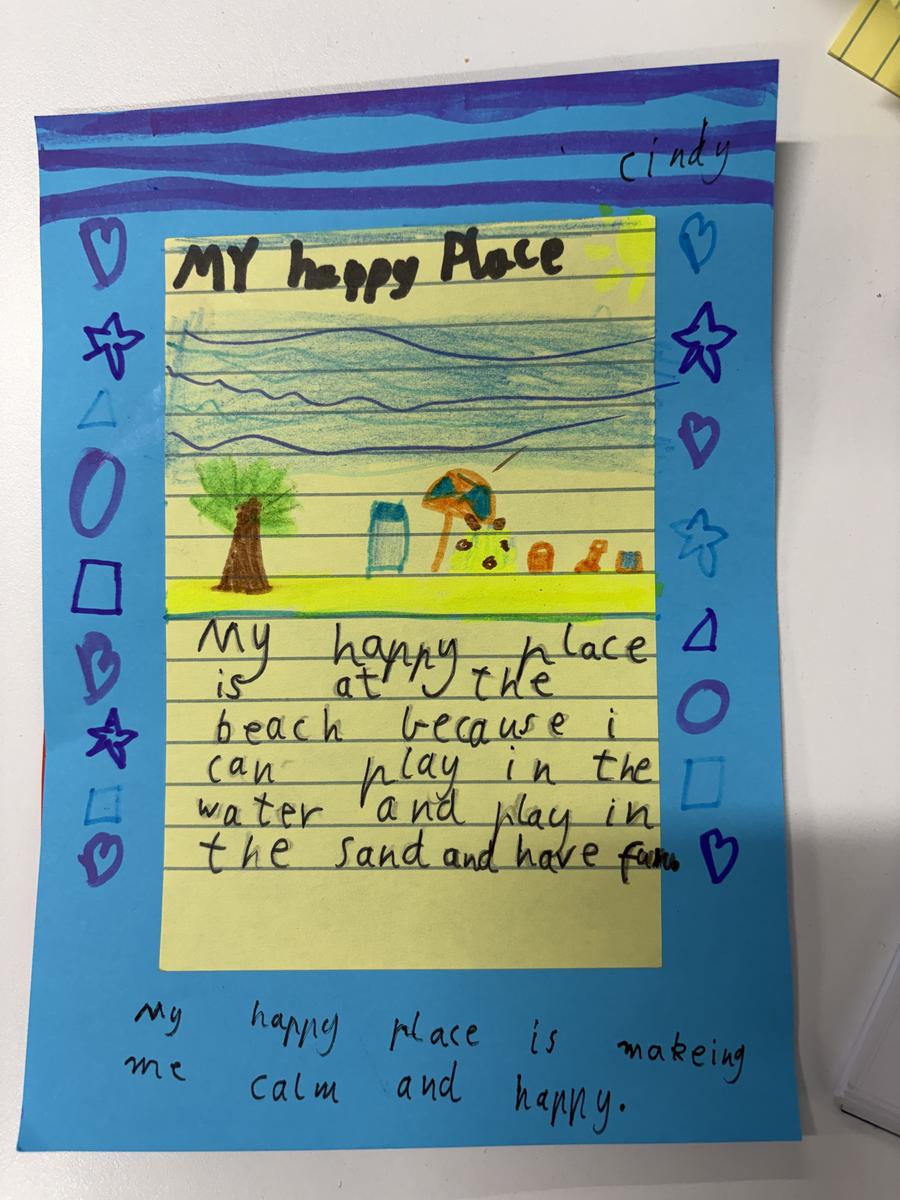 cindy
MY happy Place
My happy place
is at the
beach because i
can play in the
water and play in
the sand and have fun.
My happy place is makeing
me calm and happy.